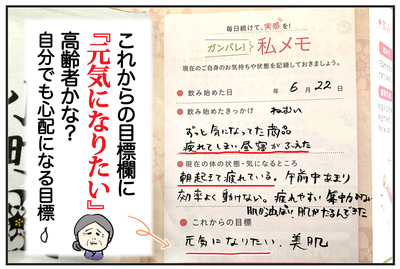 これからの目標欄に
『元気になりたい』
高齢者かな?
自分でも心配になる目標
毎日続けて、実感を!
ガンバレ! 私メモ
現在のご自身のお気持ちや状態を記録しておきましょう。
●飲み始めた日 年 6月 22日
●飲み始めたきっかけ ねむい
ずっと気になってた商品
疲れてしまい昼寝がふえた
●現在の体の状態・気になるところ
朝起きて疲れている。午前中あまり
効率よく動けない。疲れやすい 集中力がない
肌が出ない 肌がたるんできた
●これからの目標
元気になりたい、美肌